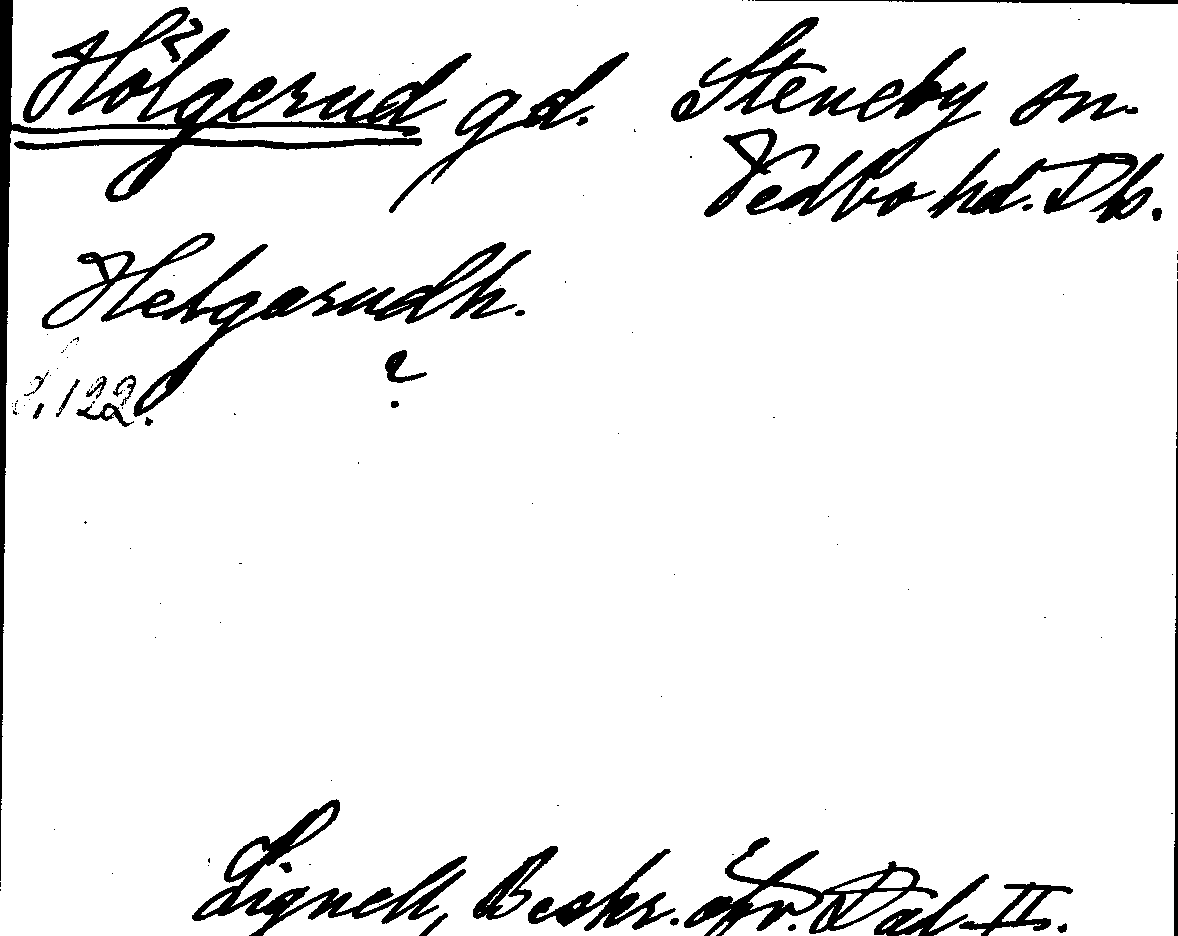 Hölgerud gd. Steneby sn.
Vedbo hd. Db.
Helgarudh.
S. 122. ?
Lignell, Beskr. öfv. Dal II.